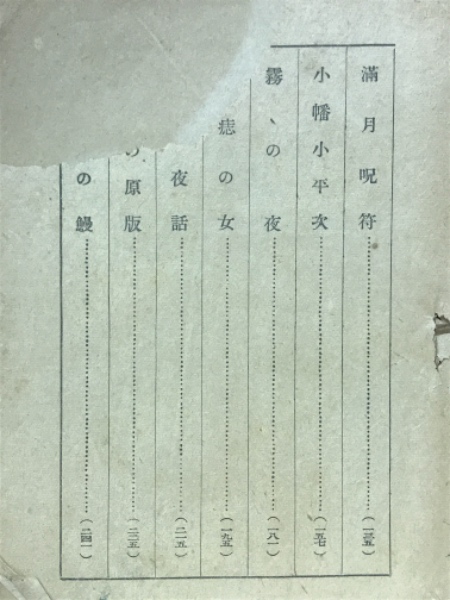 滿月呪符……(一三五)
小幡小平次……(一五七)
霧、の夜……(一八一)
痣の女……(一九五)
夜話……(二一五)
の原版……(二三五)
の鰻……(二四一)